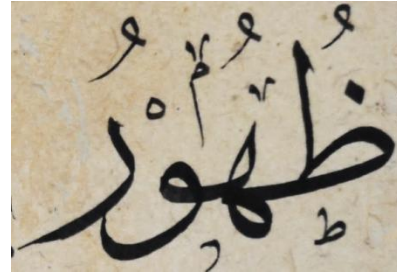 ظُهُوْرُ